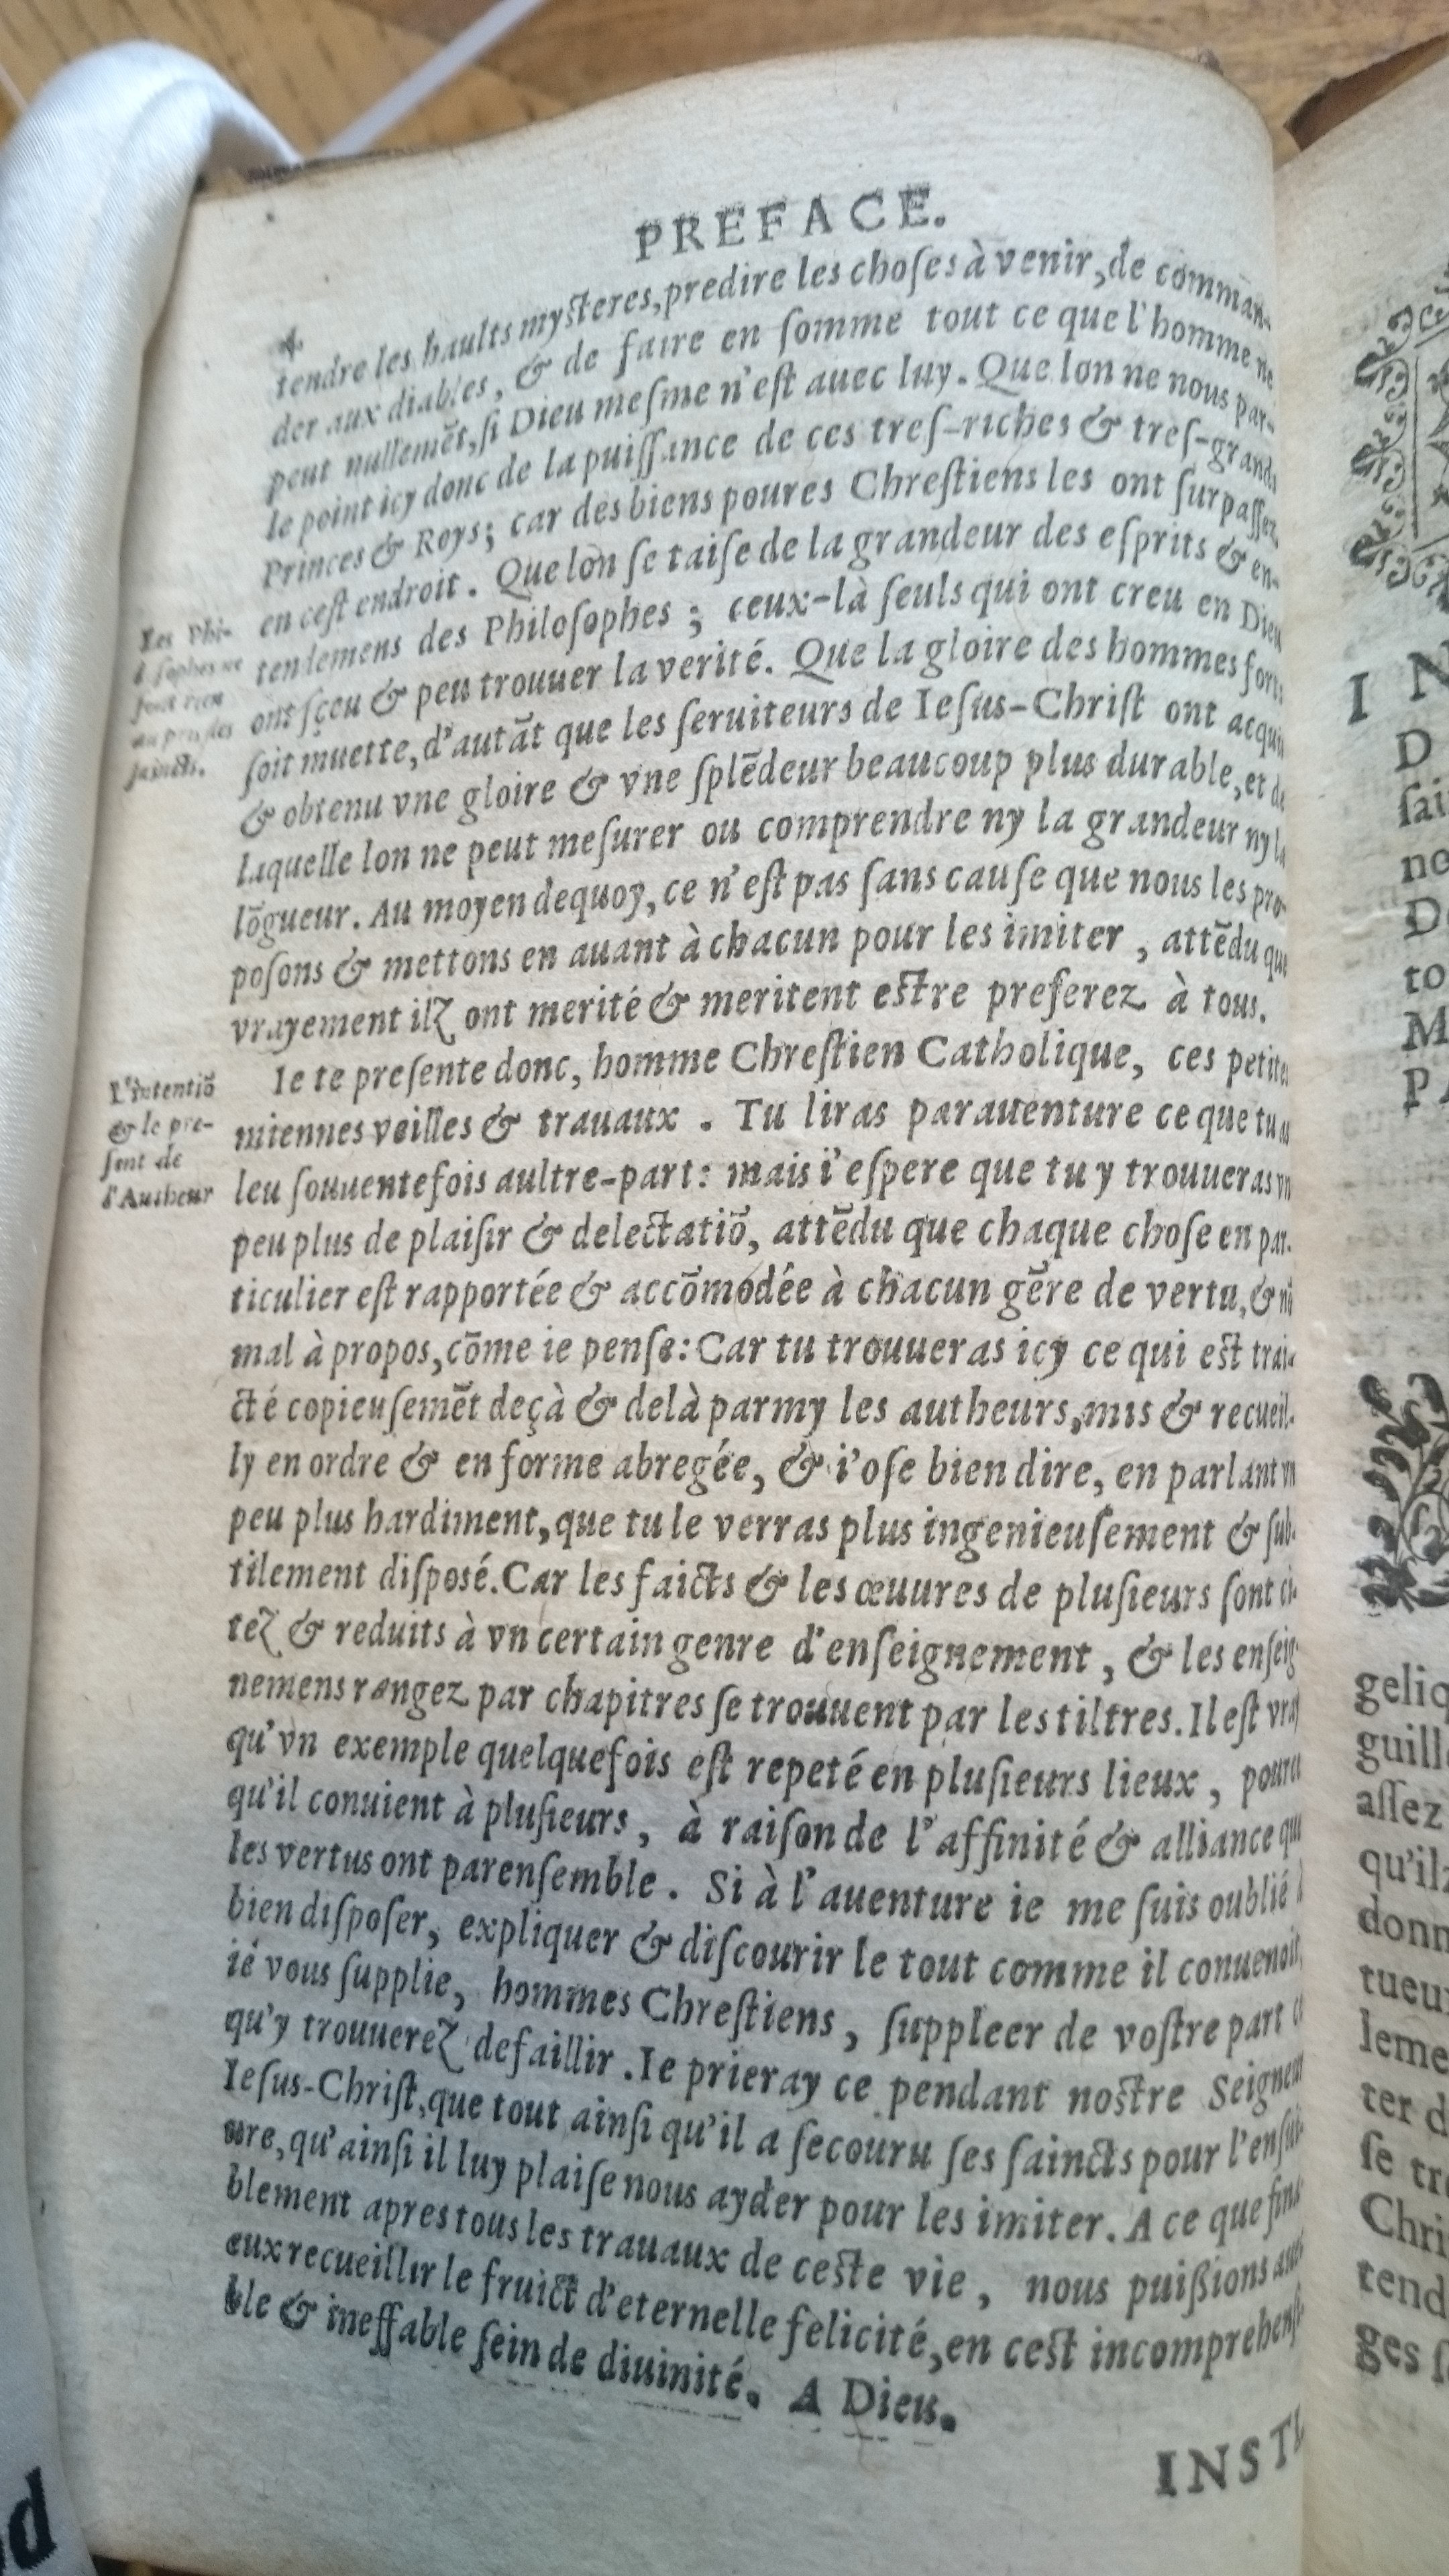 PREFACE.
tendre les haults mysteres, predire les choses à venir, de comman-
der aux diables, & de faire en somme tout ce que l'homme ne
peut nullemēt, si Dieu mesme n'est auec luy. Que lon ne nous par-
le point icy donc de la puissance de ces tres-riches & tres-grands
Princes & Roys; car des biens poures Chrestiens les ont surpassez
en cest endroit. Que lon se taise de la grandeur des esprits & en-
tendemens des Philosophes; ceux-là seuls qui ont creu en Dieu
ont sçeu & peu trouuer la verité. Que la gloire des hommes forts
soit muette, d'autāt que les seruiteurs de Iesus-Christ ont acquis
& obtenu vne gloire & vne splēdeur beaucoup plus durable, et de
laquelle lon ne peut mesurer ou comprendre ny la grandeur ny la
lōgueur. Au moyen dequoy, ce n'est pas sans cause que nous les pro-
posons & mettons en auant à chacun pour les imiter, attēdu que
vrayement ilz ont merité & meritent estre preferez à tous.
Ie te presente donc, homme Chrestien Catholique, ces petites
miennes veilles & trauaux. Tu liras parauenture ce que tu as
leu souuentefois aultre-part: mais i'espere que tu y trouueras vn
peu plus de plaisir & delectatiō, attēdu que chaque chose en par-
ticulier est rapportée & accōmodée à chacun gēre de vertu, & nō
mal à propos, cōme ie pense: Car tu trouueras icy ce qui est trai-
cté copieusemēt deçà & delà parmy les autheurs, mis & recueil-
ly en ordre & en forme abregée, & i'ose bien dire, en parlant vn
peu plus hardiment, que tu le verras plus ingenieusement & sub-
tilement disposé. Car les faicts & les œuures de plusieurs sont ci-
tez & reduits à vn certain genre d'enseignement, & les enseig-
nemens rangez par chapitres se trouuent par les tiltres. Il est vray
qu'vn exemple quelquefois est repeté en plusieurs lieux, pource
qu'il conuient à plusieurs, à raison de l'affinité & alliance que
les vertus ont parensemble. Si à l'auenture ie me suis oublié à
bien disposer, expliquer & discourir le tout comme il conuenoit,
ie vous supplie, hommes Chrestiens, suppleer de vostre part ce
qu'y trouuerez defaillir. Ie prieray ce pendant nostre Seigneur
Iesus-Christ, que tout ainsi qu'il a secouru ses saincts pour l'ensui-
ure, qu'ainsi il luy plaise nous ayder pour les imiter. A ce que fina-
blement apres tous les trauaux de ceste vie, nous puißions auec
eux recueillir le fruict d'eternelle felicité, en cest incomprehensi-
ble & ineffable sein de diuinité. A Dieu.
INSTI
Les Phi-
losophes ne
sont rien
au pris des
saincts.
L'intentiō
& le pre-
sent de
l'Autheur
I N
D
sai
ne
D
to
M
geliq
guill
assez
qu'ilz
donn
tueu
leme
ter d
se tr
Chri
tend
ges s